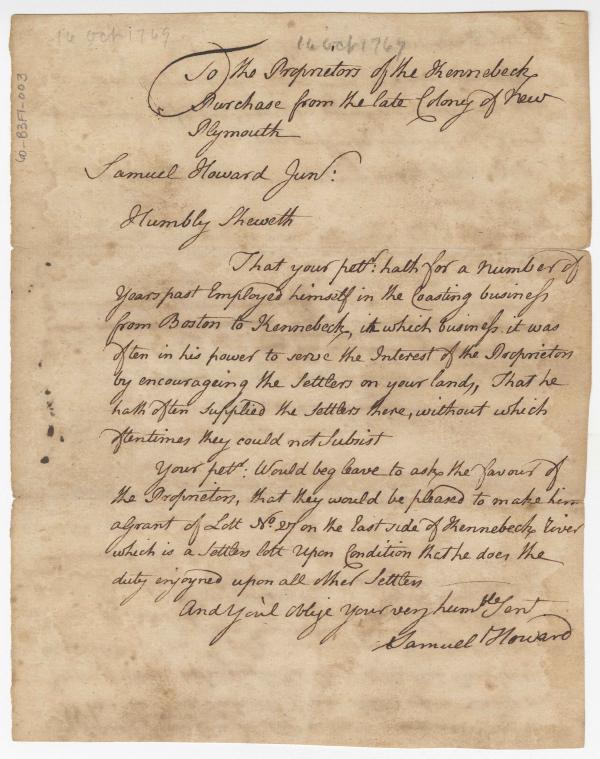 14 Oct 1769
14 Oct 1769
60-B3F1-003
To the Proprietors of the Kennebeck
Purchase from the late Colony of New
Plymouth
Samuel Howard Junr:
Humbly Sheweth
That your petr: hath for a number of
Years past Employed himself in the Coasting business
from Boston to Kennebeck, in which business it was
often in his power to serve the Interest of the Proprietors
by encourageing the Settlers on your lands, That he
hath often supplied the Settlers there, without which
oftentimes they could not Subsist
Your petr: Would beg leave to ask the favour of
the Proprietors, that they would be pleased to make him
a Grant of Lott No. 27 on the East side of Kennebeck River
which is a Settlers lott Upon Condition that he does the
duty enjoyned upon all other Settlers
And You'l oblige Your very humble Servt
Samuel Howard